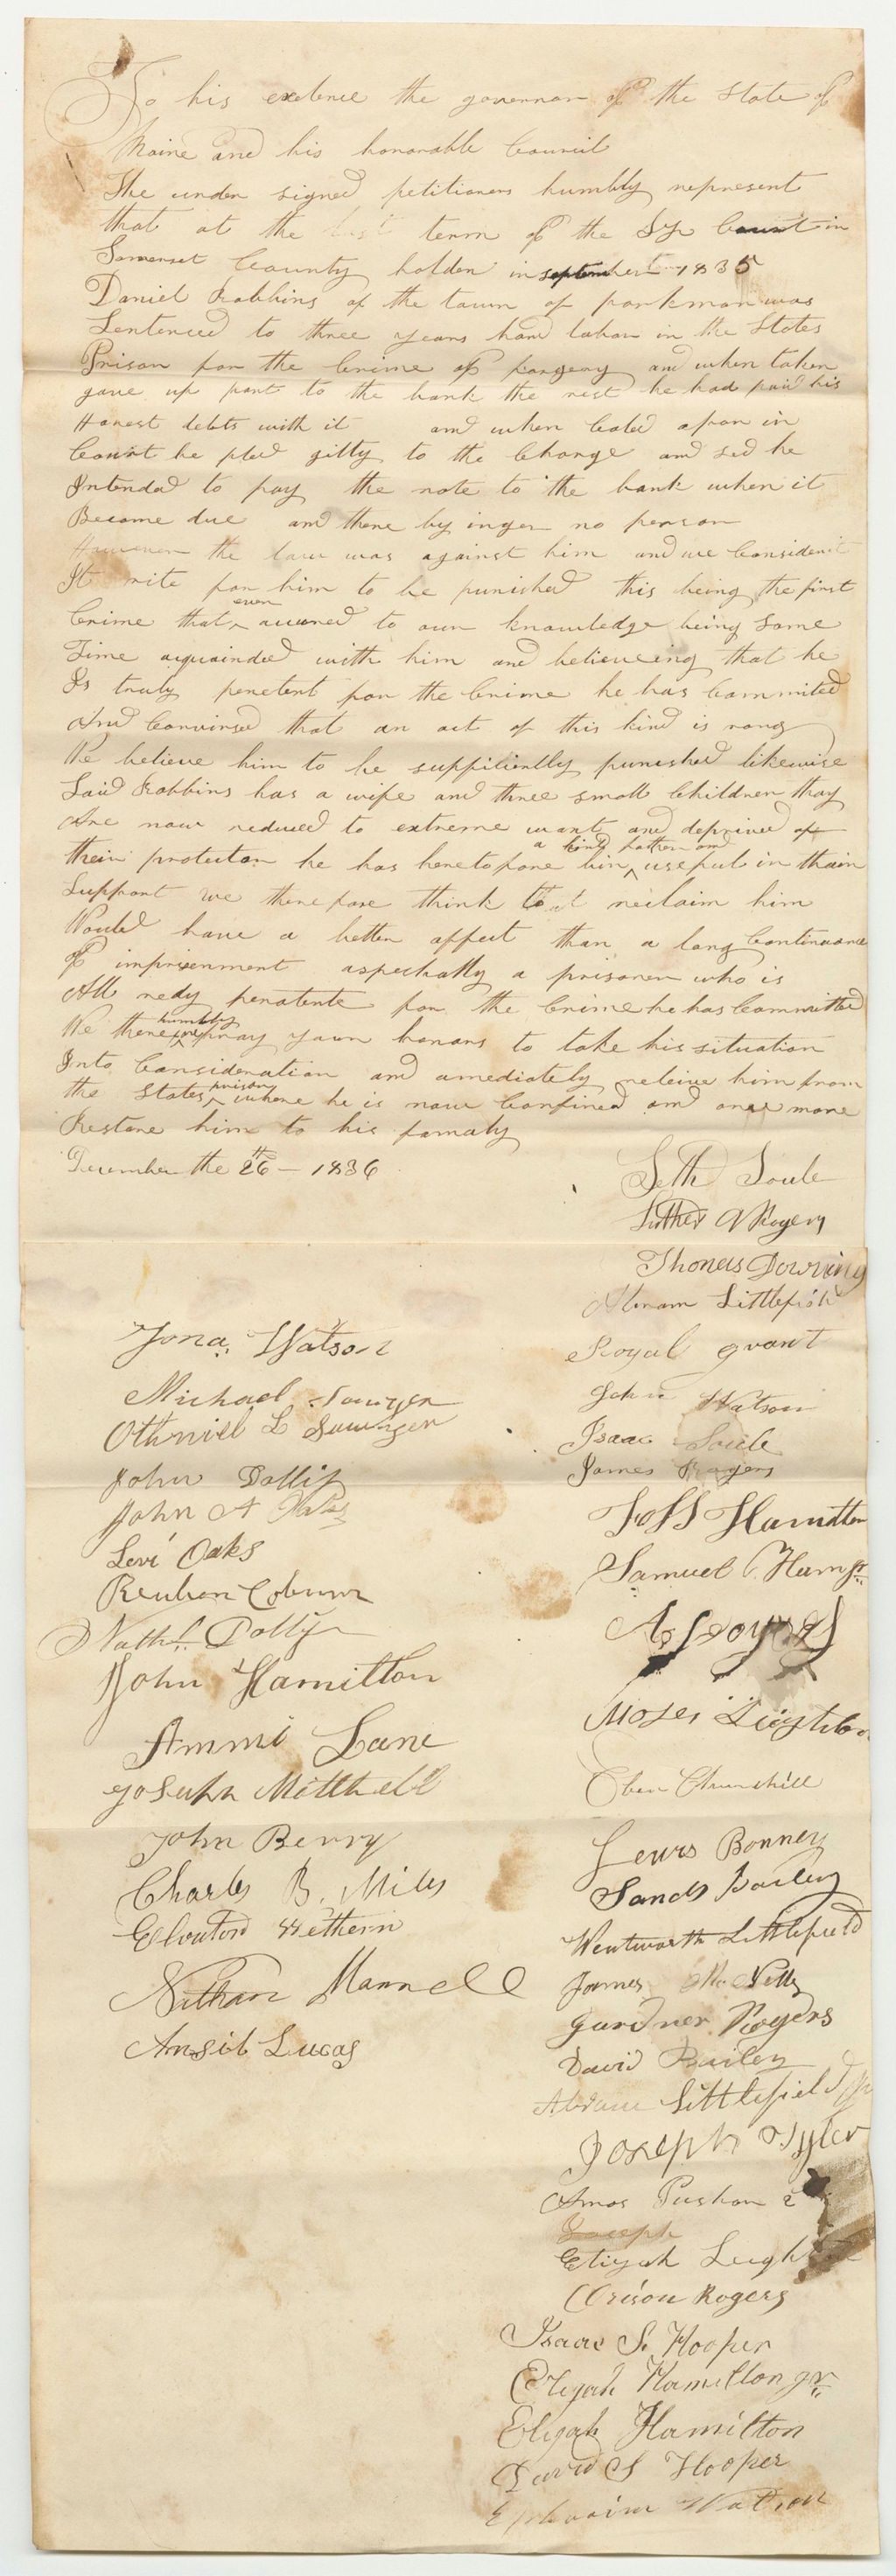 To his exelence the governor of the State of
Maine and his honorable Council
The under signed petitioners humbly represent
that at the last term of the S J Court in
Somerset County holden in september 1835
Daniel Robbins of the town of parkman was
Sentenced to three years hard labor in the States
Prison for the Crime of forgery and when taken
gave up part to the bank the rest he had paid his
Honest debts with it and when Caled apon in
Court he pled gilty to the Charge and sed he
Intended to pay the note to the bank when it
Became due and there by inger no person
However the law was against him and we Consider it
It rite for him to be punished this being the first
Crime that ever accured to our knowledge being Some
Time aquainded with him and believeing that he
Is truly penetent for the Crime he has Committed
And Convinsed that an act of this kind is rong
We believe him to be suffiliently punished likewise
Said Robbins has a wife and three small Children thay
Are now reduced to extreme want and deprived of
their protector he has heretofore bin a kind father and useful in thair
Support we there fore think to reclaim him
Would have a better affect than a long Continuance
of imprisenment aspechally a prisoner who is
All redy penatente for the Crime he has Committed
We there fore humbly pray your honors to take his situation
Into Consideration and amediately releive him from
the States prison where he is now Confined and once more
Restore him to his famaly
December the 26th - 1836
Seth Soule
Luther Rogers
Thomas Downing
Abram Littlefield
Royal grant
John Watson
Isaac Soule
James Rogers
Foss Hamilton
Samuel Ham Jr
Moses Leighton
Eben Churchill
Lewis Bonney
Sands Bailey
Wentworth Littlefield
James
Gardner Rogers
David Bailey
Abram Littlefield Jr
Joseph Tyler
Amos Pushon 2
Joseph
Elijah Leighton
Orison Rogers
Isaac S. Hooper
Elijah Hamilton Jr
Elijah Hamilton
David S Hooper
Ephraim Watson
Jona. Watson
Michael Sawyer
Othniel L Sawyer
John Dollif
John A
Levi Oaks
Reuben Coburn
Nathl Dollif
John Hamilton
Ammi Lane
Joseph Mitchell
John Berry
Charles B. Miles
Wethern
Nathan Mannell
Ansil Lucas